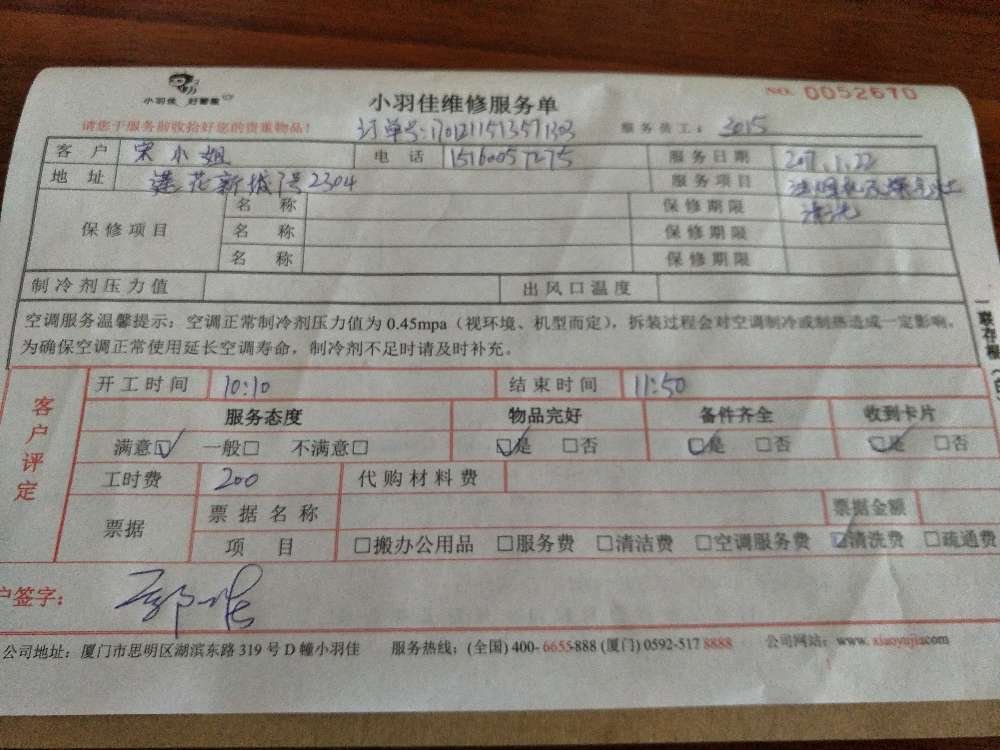 小羽佳 好管家
小羽佳维修服务单
NO. 0052670
请您于服务前收拾好您的贵重物品!
订单号:1701211513571303
服务员工: 3015
客户 宋小姐 电话 15160057275 服务日期 2017.1.22
地址 莲花新城7号2304 服务项目 油烟机及煤气灶
清洗
保修项目 名称 保修期限
名称 保修期限
名称 保修期限
制冷剂压力值 出风口温度
空调服务温馨提示:空调正常制冷剂压力值为 0.45mpa(视环境、机型而定),拆装过程会对空调制冷或制热造成一定影响。
为确保空调正常使用延长空调寿命,制冷剂不足时请及时补充。
一联存根
客户评定
开工时间 10:10 结束时间 11:50
服务态度 物品完好 备件齐全 收到卡片
满意☑ 一般□ 不满意□ ☑是 □否 ☑是 □否 ☑是 □否
工时费 200 代购材料费
票据 票据名称 票据金额
项目 □搬办公用品 □服务费 □清洁费 □空调服务费 ☑清洗费 □疏通费
户签字:
公司地址:厦门市思明区湖滨东路 319 号 D 幢小羽佳 服务热线:(全国) 400-6655-888 (厦门) 0592-517 8888 公司网站:www.xiaoyujia.com